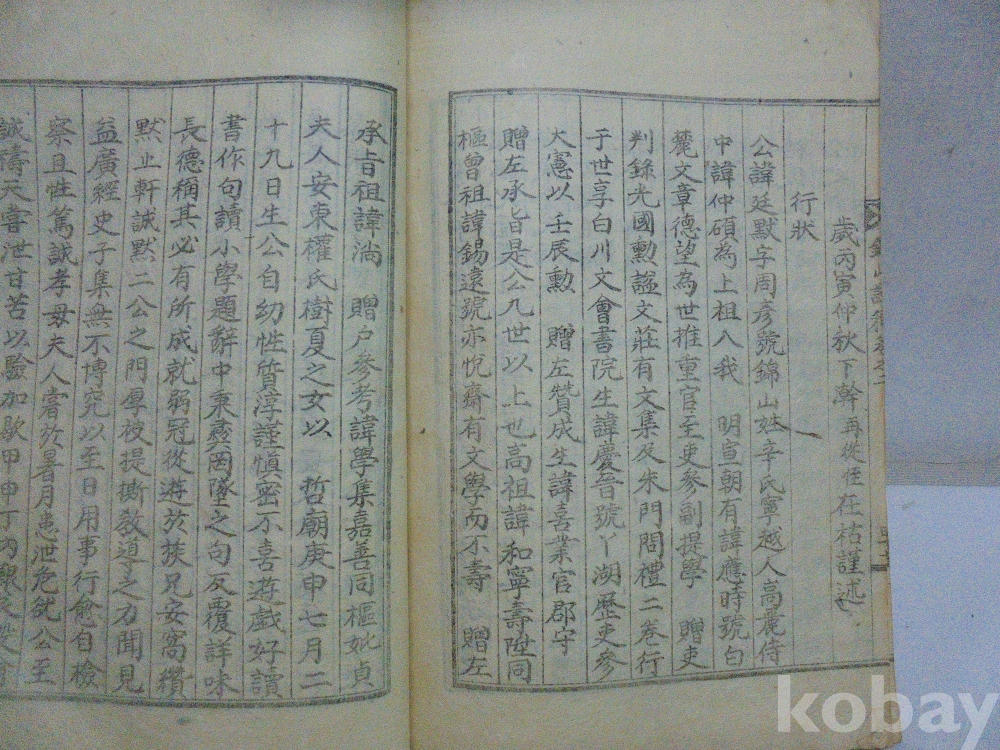 歲丙寅仲秋下澣再從侄在祜謹述
行狀
公諱廷默字周彦號錦山姓辛氏寧越人高麗侍
中諱仲碩為上祖入我 明宣朝有諱應時號白
麓文章德望為世推重官至吏參副提學 贈吏
判錄光國勳謚文莊有文集及朱門問禮二卷行
于世享白川文會書院生諱慶晉號丫湖歷吏參
大憲以壬辰勳 贈左贊成生諱喜業官郡守
贈左承旨是公九世以上也高祖諱和寧壽陞同
樞曾祖諱錫遠號亦悅齋有文學而不壽 贈左
承旨祖諱漪 贈户參考諱學集嘉善同樞妣貞
夫人安東權氏樹夏之女以 哲廟庚申七月二
十九日生公自幼性質淳謹愼密不喜遊戲好讀
書作句讀小學題辭中秉彛罔墜之句反覆詳味
長德稱其必有所成就弱冠從遊於族兄安窩纘
默止軒誠默二公之門厚被提撕敎導之力聞見
益廣經史子集無不博究以至日用事行愈自檢
察且性篤誠孝母夫人嘗於暑月患泄危㞃公至
誠禱天嘗泄甘苦以驗加歇甲申丁內艱
kobay